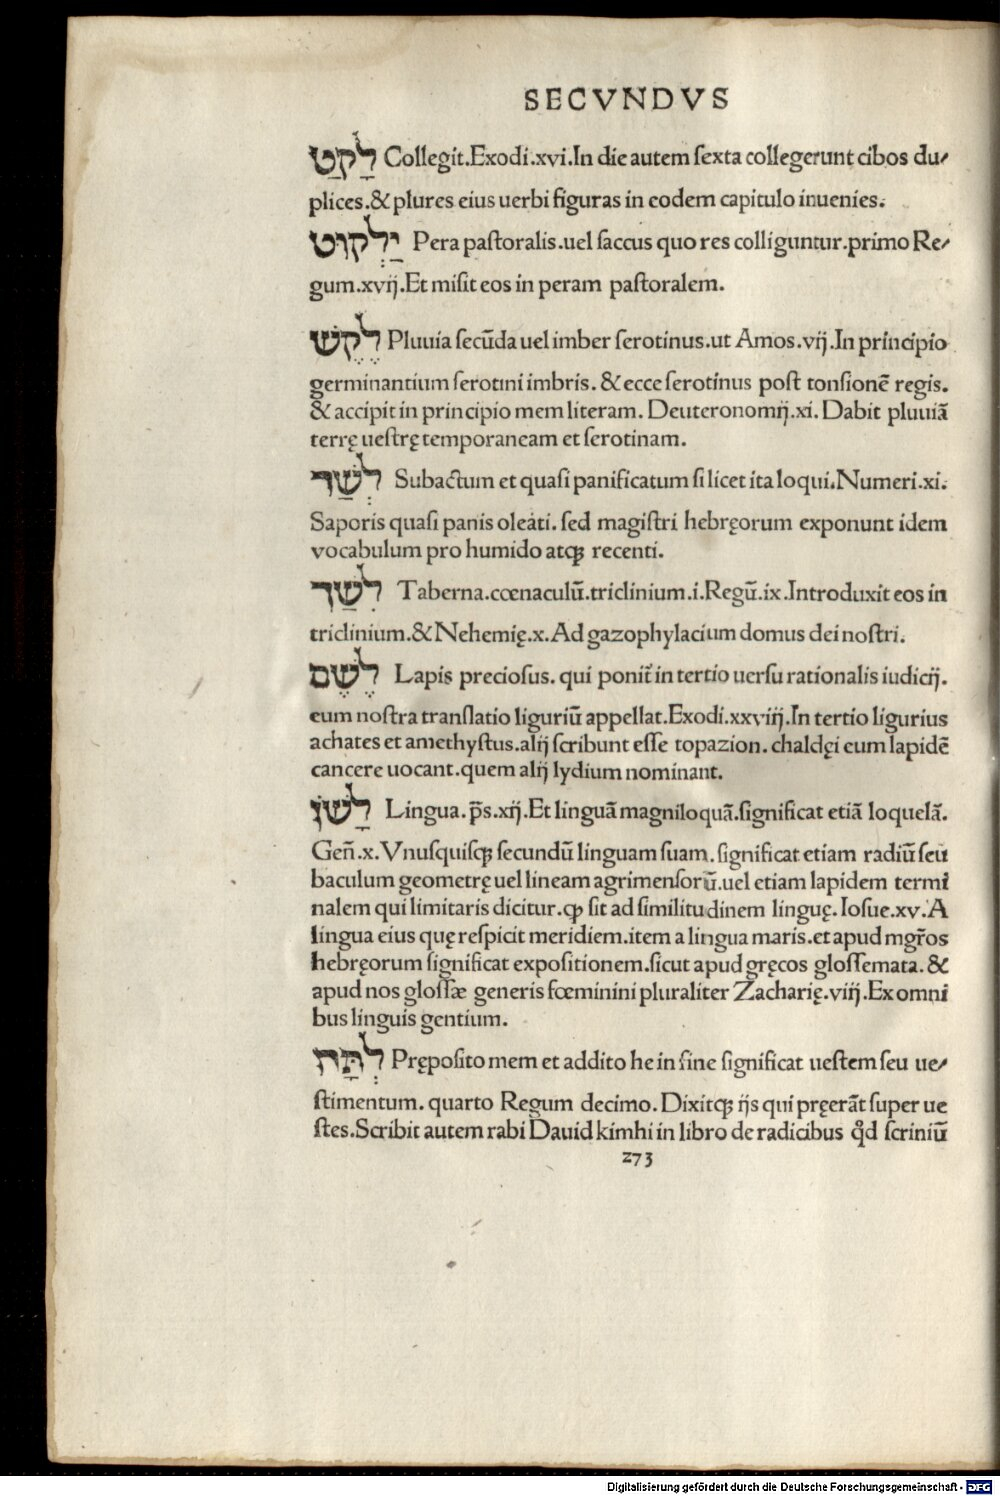 SECVNDVS
לָקַט Collegit.Exodi.xvi.In die autem ſexta collegerunt cibos du⸗
plices.& plures eius uerbi figuras in eodem capitulo inuenies.
יַלְקוּט Pera paſtoralis.uel ſaccus quo res colliguntur.primo Re⸗
gum.xvij.Et miſit eos in peram paſtoralem.
לֶקֶשׁ Pluuia ſecūda uel imber ſerotinus.ut Amos.vij.In principio
germinantium ſerotini imbris.& ecce ſerotinus poſt tonſionē regis.
& accipit in principio mem literam. Deuteronomij.xi.Dabit pluuiā
terrę ueſtrę temporaneam et ſerotinam.
לְשַׁד Subactum et quaſi panificatum ſi licet ita loqui.Numeri.xi.
Saporis quaſi panis oleati. ſed magiſtri hebręorum exponunt idem
vocabulum pro humido atqꝫ recenti.
לִשַׁךְ Taberna.cœnaculū.triclinium.i.Regū.ix.Introduxit eos in
triclinium.& Nehemię.x.Ad gazophylacium domus dei noſtri.
לֶשֶׁם Lapis precioſus. qui ponit᷑ in tertio uerſu rationalis iudicij.
eum noſtra tranſlatio liguriū appellat.Exodi.xxviij.In tertio ligurius
achates et amethyſtus.alij ſcribunt eſſe topazion. chaldęi eum lapidē
cancere uocant.quem alij lydium nominant.
לָשׁןֹ Lingua.p̄s.xij.Et linguā magniloquā.ſignificat etiā loquelā.
Geñ.x.Vnuſquiſqꝫ ſecundū linguam ſuam.ſignificat etiam radiū ſeu
baculum geometrę uel lineam agrimenſorū.uel etiam lapidem termi
nalem qui limitaris dicitur.ꝙ ſit ad ſimilitudinem linguę. Ioſue.xv.A
lingua eius quę reſpicit meridiem.item a lingua maris.et apud mgr̃os
hebręorum ſignificat expoſitionem.ſicut apud gręcos gloſſemata.&
apud nos gloſſæ generis fœminini pluraliter Zacharię.viij.Ex omni
bus linguis gentium.
לְתָּח Prępoſito mem et addito he in fine ſignificat ueſtem ſeu ue⸗
ſtimentum. quarto Regum decimo. Dixitqꝫ ijs qui pręerāt ſuper ue
ſtes.Scribit autem rabi Dauid kimhi in libro de radicibus qd̕ ſcriniū
273
Digitalisierung gefördert durch die Deutsche Forschungsgemeinschaft - DFG